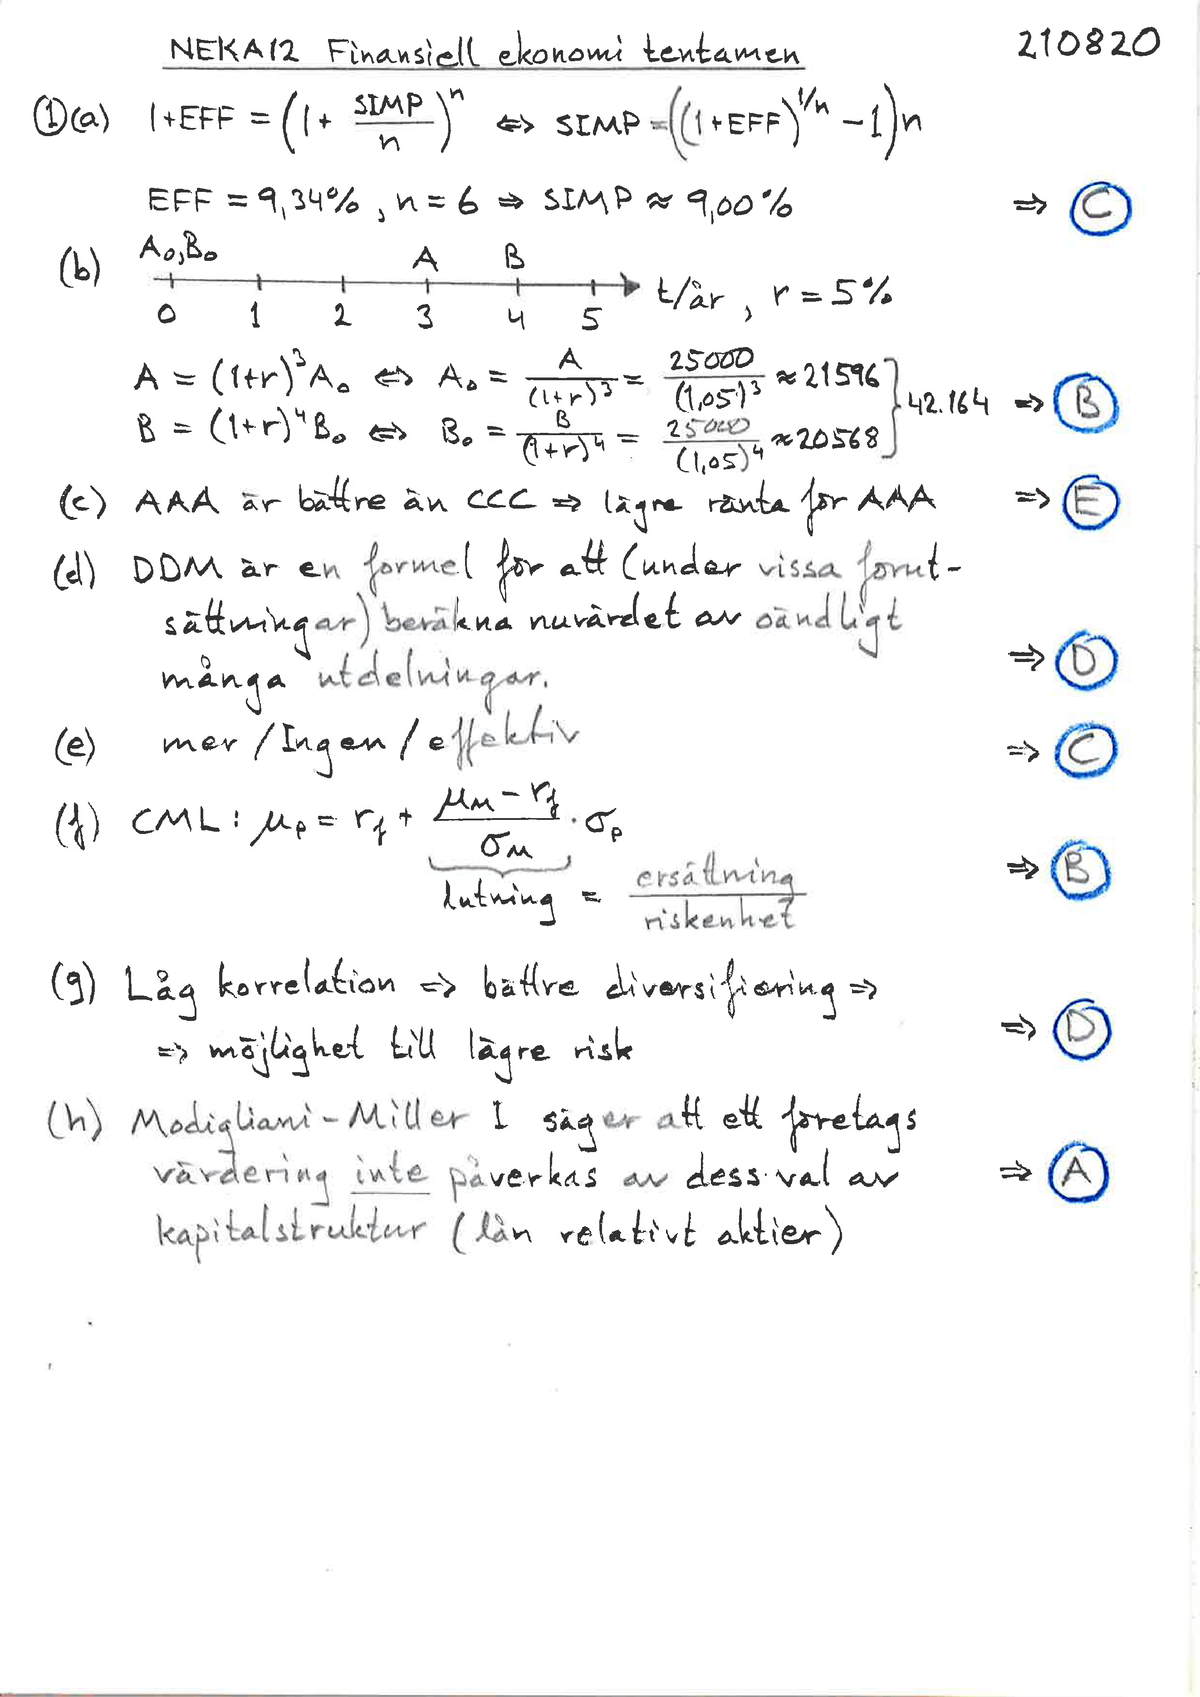 NEKA12 Finansiell ekonomi tentamen 210820
①(a) 1+EFF = (1 + SIMP/n)^n ⇔ SIMP = ((1+EFF)^1/n − 1)n
EFF = 9,34%, n = 6 ⇒ SIMP ≈ 9,00% ⇒ C
(b) A₀,B₀ A B
0 1 2 3 4 5 t/år, r = 5%
A = (1+r)³A₀ ⇔ A₀ = A/(1+r)³ = 25000/(1,05)³ ≈ 21596
B = (1+r)⁴B₀ ⇔ B₀ = B/(1+r)⁴ = 25000/(1,05)⁴ ≈ 20568 } 42.164 ⇒ B
(c) AAA är bättre än CCC ⇒ lägre ränta för AAA ⇒ E
(d) DDM är en formel för att (under vissa förut-
sättningar) beräkna nuvärdet av oändligt
många utdelningar. ⇒ D
(e) mer / Ingen / effektiv ⇒ C
(f) CML: μₚ = r_f + (μ_M − r_f)/σ_M · σₚ
lutning = ersättning/riskenhet ⇒ B
(g) Låg korrelation ⇒ bättre diversifiering ⇒
⇒ möjlighet till lägre risk ⇒ D
(h) Modigliani-Miller I säger att ett företags
värdering inte påverkas av dess val av ⇒ A
kapitalstruktur (lån relativt aktier)